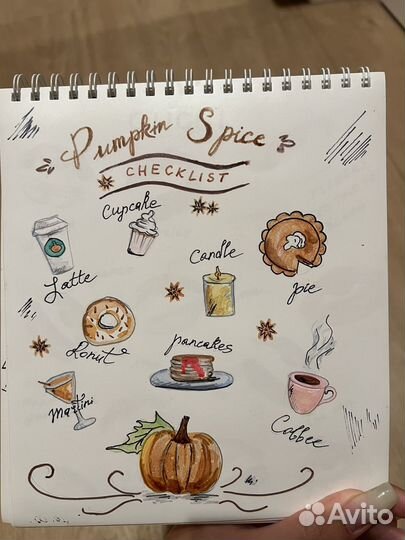 Pumpkin Spice
CHECKLIST
Cupcake
Latte
Candle
pie
Donut
pancakes
Martini
Coffee
Avito